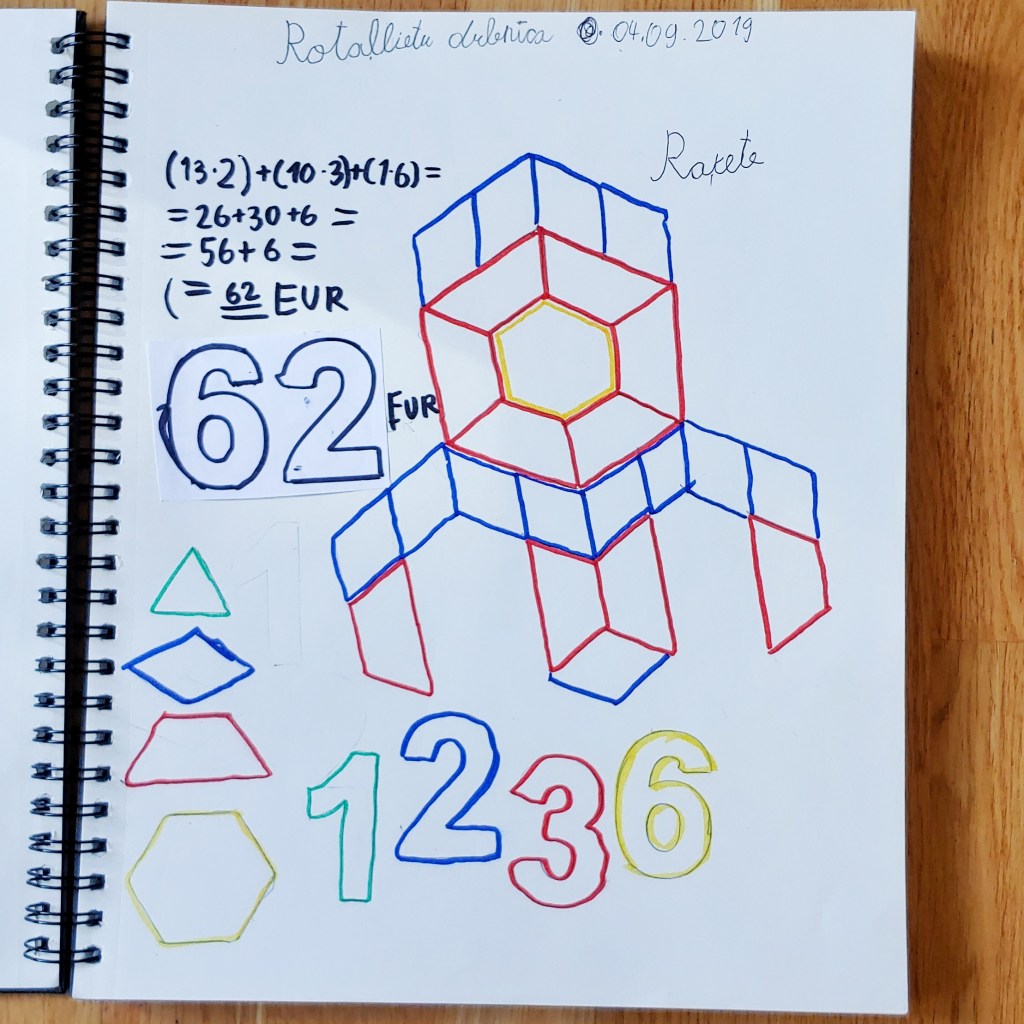 Rotaļlietu darbnīca 04.09.2019
Raķete
(13·2)+(10·3)+(1·6)=
=26+30+6 =
=56+6 =
(= 62 EUR
62 EUR
1
1 2 3 6